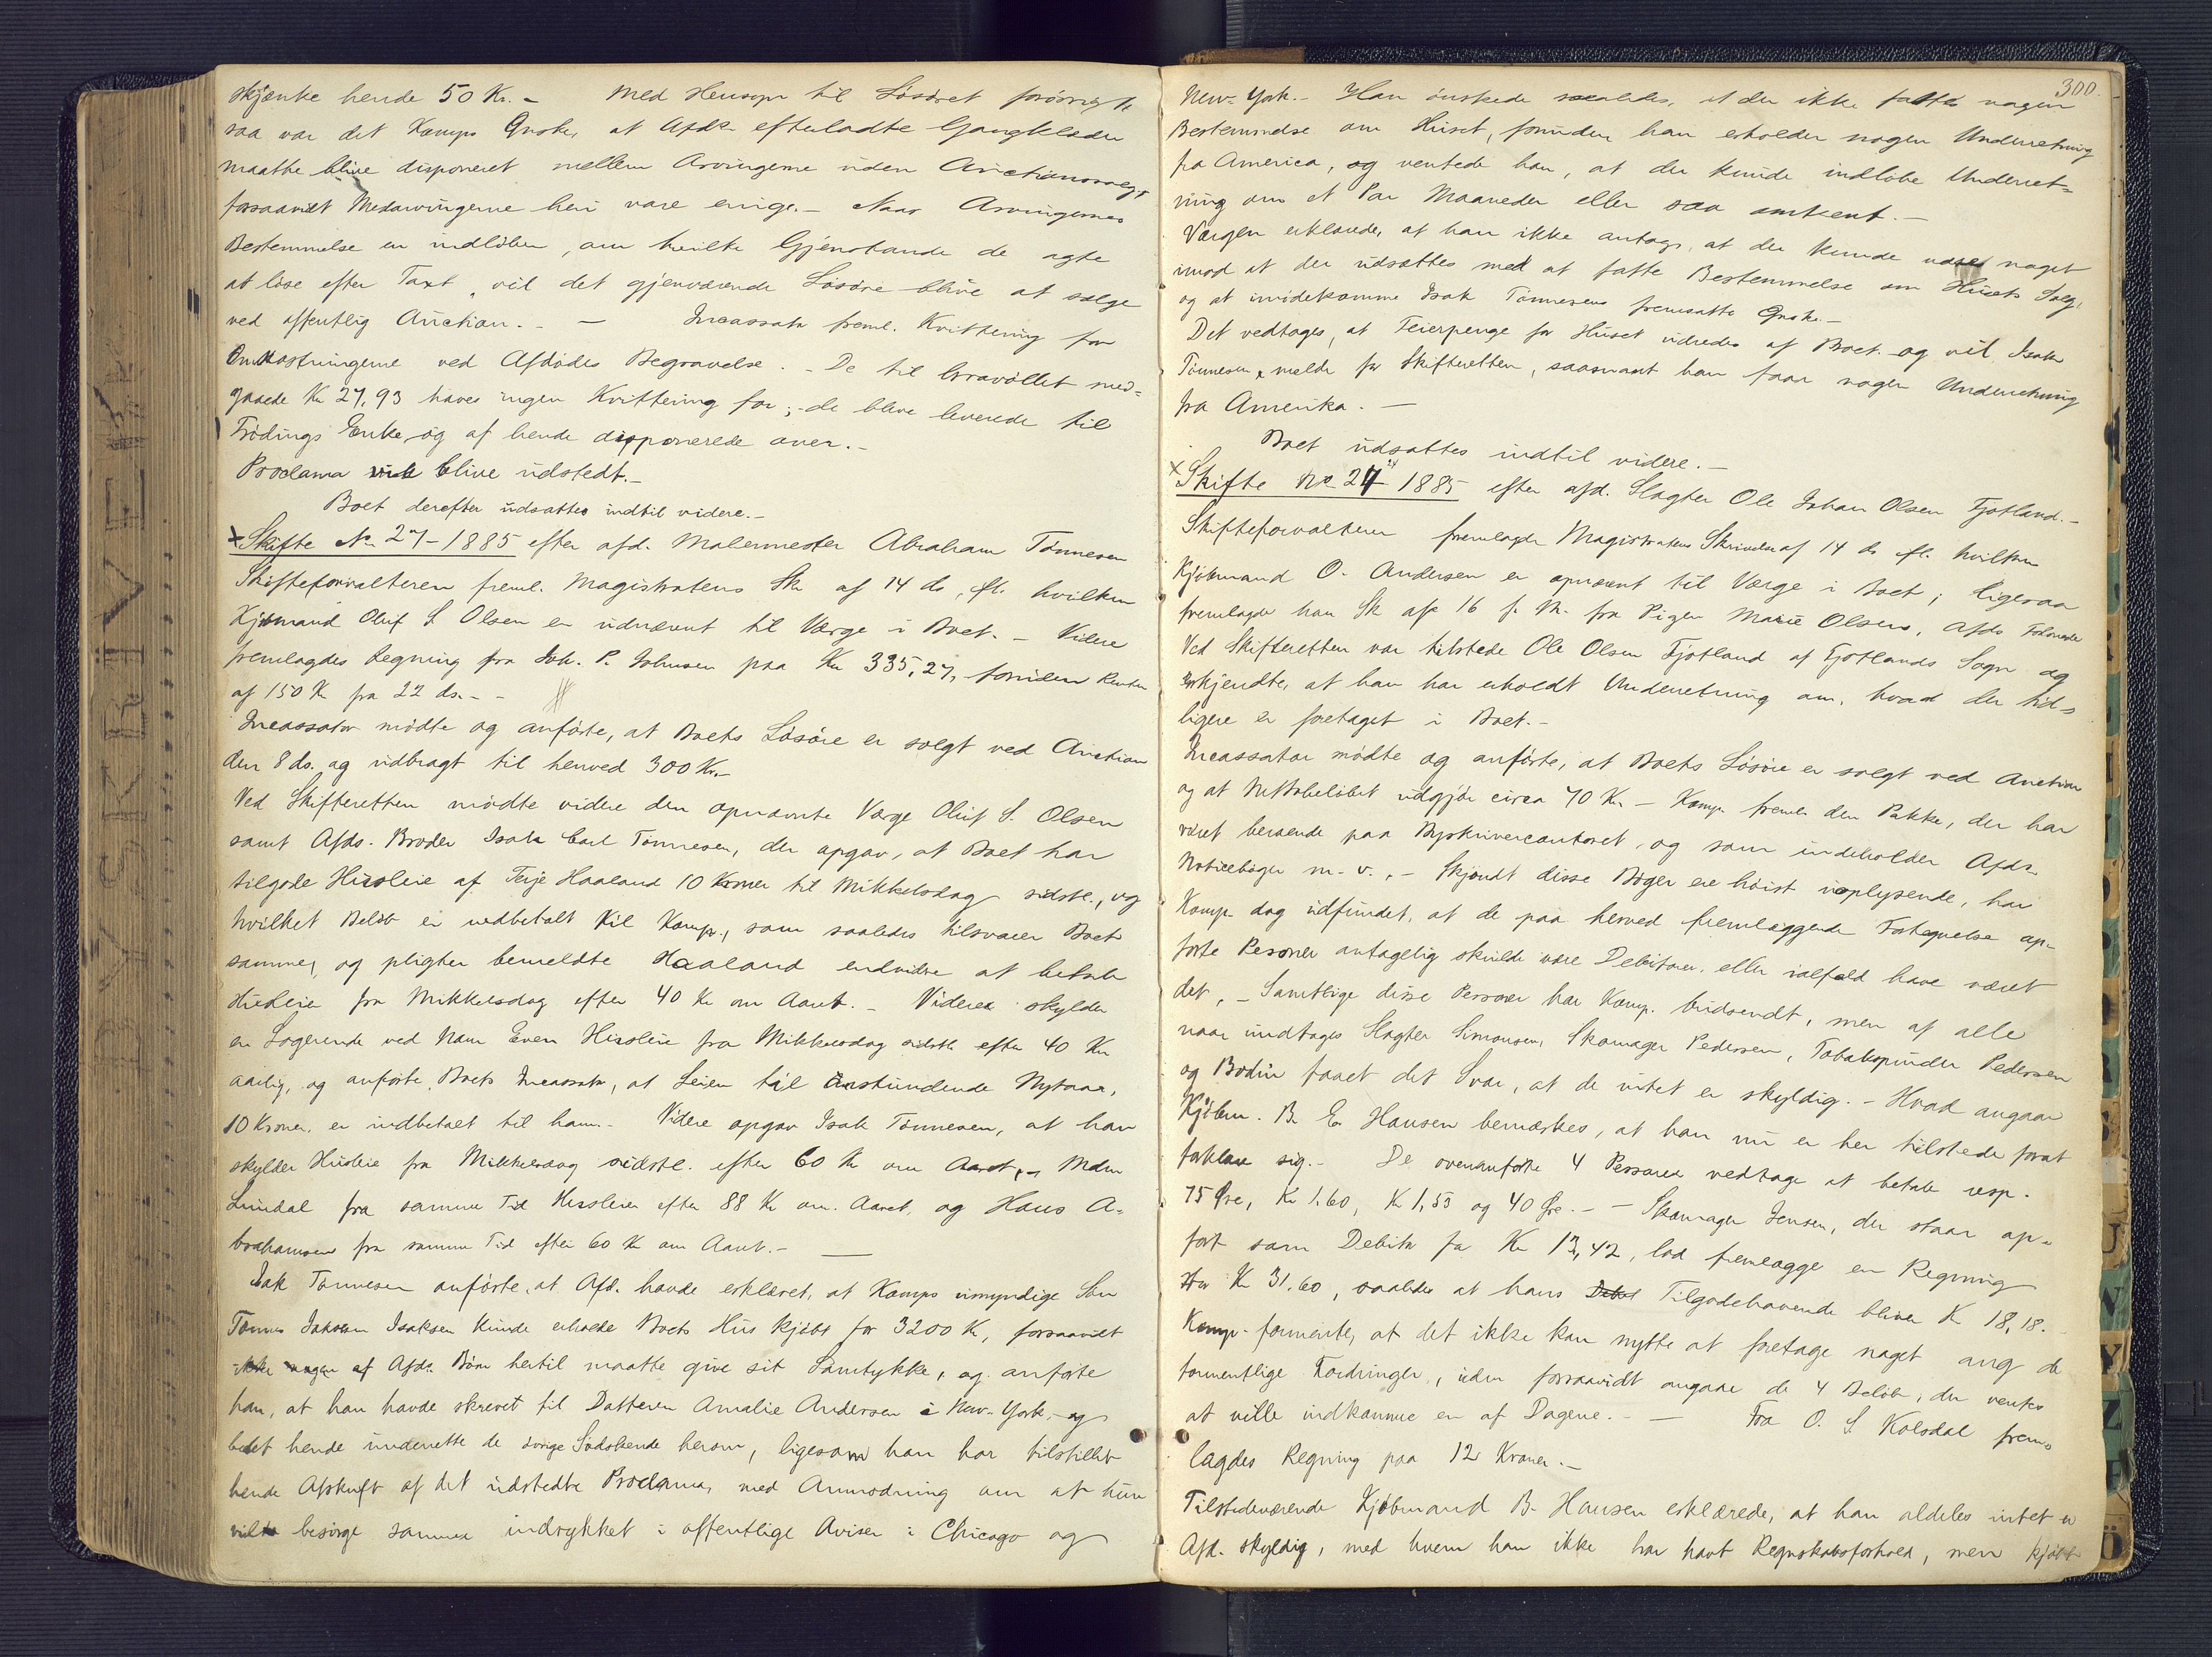 skjænke hende 50 Kr. – Med Hensyn til Løsøret forøvrigt
saa var det Komps Ønske, at Afdøes efterladte Gangklæder
maatte blive disponeret mellem Arvingerne uden Auctionssalg,
forsaavidt Medarvingerne heri vare enige. – Naar Arvingernes
Bestemmelse er indløben, om hvilke Gjenstande de agte
at løse efter Taxt, vil det gjenværende Løsøre blive at sælge
ved offentlig Auction. – – Incassator freml. Kvittering for
Omkostningerne ved Afdødes Begravelse. – De til Gravøllet med=
gaaede Kr 27,93 haves ingen Kvittering for; de bleve leverede til
Frødings Enke og af hende disponerede over. –
Proclama vil blive udstedt. –
Boet derefter udsattes indtil videre. –
Skifte No 27 – 1885 efter afd. Malermester Abraham Tønnesen
Skifteforvalteren freml. Magistratens Sk af 14 ds, ifl. hvilken
Kjøbmand Oluf S Olsen er udnævnt til Værge i Boet. – Videre
fremlagdes Regning fra Joh. P. Johnsen paa Kr 335,27, foruden Renter
af 150 Kr fra 22 ds. – –
Incassator mødte og anførte, at Boets Løsøre er solgt ved Auction
den 8 ds. og udbragt til henved 300 Kr. –
Ved Skifteretten mødte videre den opnævnte Værge Oluf S. Olsen
samt Afds. Broder Isak Carl Tønnesen, der opgav, at Boet har
tilgode Husleie af Terje Haaland 10 Kroner til Mikkelsdag sidstl., og
hvilket Beløb er indbetalt til Komp., som saaledes tilsvarer Boet
samme, og pligter bemeldte Haaland endvidere at betale
Husleie fra Mikkelsdag efter 40 Kr om Aaret. – Videre skylder
en Logerende ved Navn Even Husleie fra Mikkelsdag sidstl. efter 40 Kr
aarlig, og anførte Boets Incassator, at Leien til anstundende Nytaar,
10 Kroner, er indbetalt til ham. – Videre opgav Isak Tønnesen, at han
skylder Husleie fra Mikkelsdag sidstl. efter 60 Kr om Aaret, – Mdm
Lundal fra samme Tid Husleie efter 88 Kr om Aaret, og Hans A=
brahamsen fra samme Tid efter 60 Kr om Aaret. –
Isak Tønnesen anførte, at Afd. havde erklæret, at Komps umyndige Søn
Tønnes Isaksen kunde erholde Boets Hus kjøbt for 3200 Kr, forsaavidt
ikke nogen af Afds. Børn hertil maatte give sit Samtykke, og anførte
han, at han havde skrevet til Datteren Amalie Andersen i New-York, og
bedet hende underrette de øvrige Sødskende herom, ligesom han har tilstillet
hende Afskrift af det udstedte Proclama, med Anmodning om at hun
vilde besørge samme indrykket i offentlige Aviser i Chicago og
300.
New-York. – Han ønskede saaledes, at der ikke fattes nogen
Bestemmelse om Huset, forinden han erholder nogen Underretning
fra America, og ventede han, at der kunde indløbe Underret=
ning om et Par Maaneder eller saa omtrent. –
Værgen erklærede, at han ikke antager, at der kunde være noget
imod at der udsættes med at fatte Bestemmelse om Husets Salg,
og at imødekomme Isak Tønnesens fremsatte Ønske. –
Det vedtages, at Feierpenge for Huset udredes af Boet og vil Isak
Tønnesen melde for Skifteretten, saasnart han faar nogen Underretning
fra Amerika. –
Boet udsattes indtil videre. –
Skifte No 24 1885 efter afd. Slagter Ole Johan Olsen Fjotland. –
Skifteforvalteren fremlagde Magistratens Skrivelse af 14 ds ifl. hvilken
Kjøbmand O. Andersen er opnævnt til Værge i Boet; ligesaa
fremlagde han Sk af 16 f. M. fra Pigen Marie Olsen, Afds Forlovede
Ved Skifteretten var tilstede Ole Olsen Fjotland af Fjotlands Sogn og
erkjendte, at han har erholdt Underretning om, hvad der tid=
ligere er foretaget i Boet. –
Incassator mødte og anførte, at Boets Løsøre er solgt ved Auction
og at Nettobeløbet udgjør circa 70 Kr. – Komp. freml. den Pakke, der har
været beroende paa Byskrivercontoret, og som indeholder Afds
Noticebøger m. v. – Skjøndt disse Bøger ere høist uoplysende, har
Komp. dog udfundet, at de paa herved fremlæggende Fortegnelse op=
førte Personer antagelig skulde være Debitorer, eller ialfald have været
det. – Samtlige disse Personer har Komp. budsendt, men af alle
naar undtages Slagter Simonsen, Skomager Pedersen, Tobakspinder Pedersen
og Bodin faaet det Svar, at de intet er skyldig. – Hvad angaar
Kjøbm. B. E. Hansen bemærkes, at han nu er her tilstede forat
forklare sig. – De ovenanførte 4 Personer vedtage at betale resp.
75 Øre, Kr 1.60, Kr 1,53 og 40 Øre. – – Skomager Jensen, der staar op=
ført som Debitor for Kr 13,42, lod fremlægge en Regning
stor Kr 31.60, saaledes at hans Tilgodehavende bliver Kr 18,18.
Komp. formente, at det ikke kan nytte at foretage noget ang de
formentlige Fordringer, uden forsaavidt angaar de 4 Beløb, der ventes
at ville indkomme en af Dagene. – – Fra O. S Kolsdal frem=
lagdes Regning paa 12 Kroner. –
Tilstedeværende Kjøbmand B. Hansen erklærede, at han aldeles intet er
Afd. skyldig, med hvem han ikke har havt Regnskabsforhold, men kjøbt